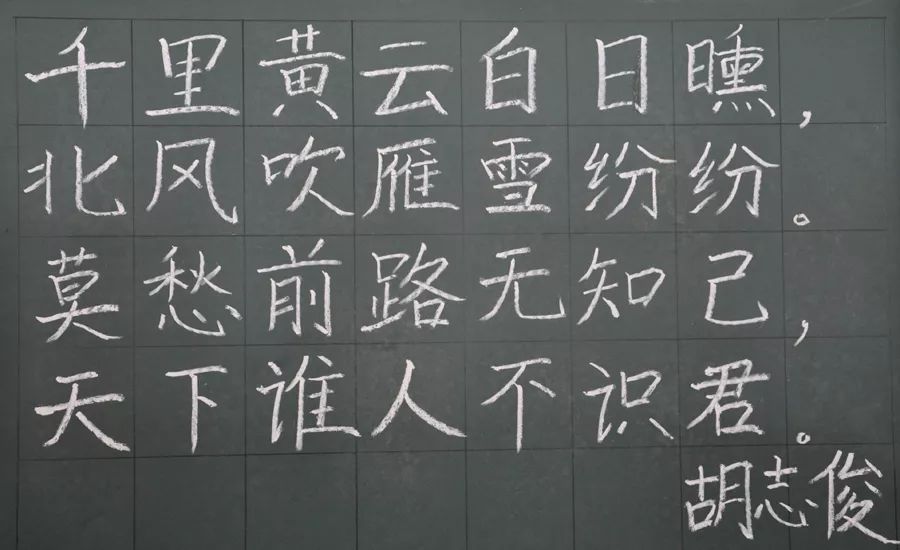 千里黄云白日曛，
北风吹雁雪纷纷。
莫愁前路无知己，
天下谁人不识君。
胡志俊